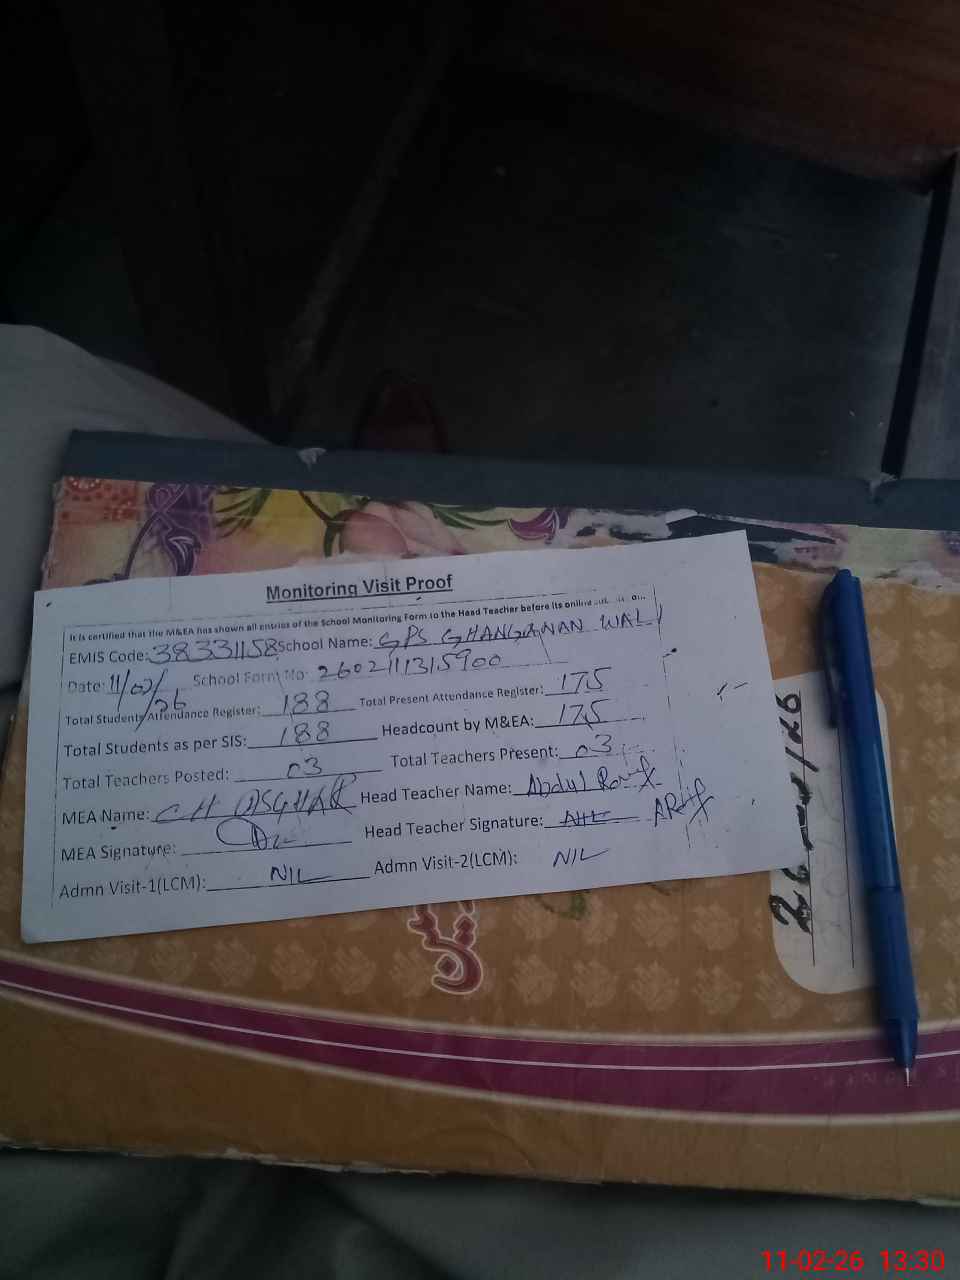 Monitoring Visit Proof
It is certified that the M&EA has shown all entries of the School Monitoring Form to the Head Teacher before its online
EMIS Code: 38331158 School Name: GPS GHANGANAN WALI
Date: 11/02/26 School Form No: 2602111315900
Total Students Attendance Register: 188 Total Present Attendance Register: 175
Total Students as per SIS: 188 Headcount by M&EA: 175
Total Teachers Posted: 03 Total Teachers Present: 03
MEA Name: CH ASGHAR Head Teacher Name: Abdul Rouf
MEA Signature: Head Teacher Signature:
Admn Visit-1(LCM): NIL Admn Visit-2(LCM): NIL
11-02-26 13:30